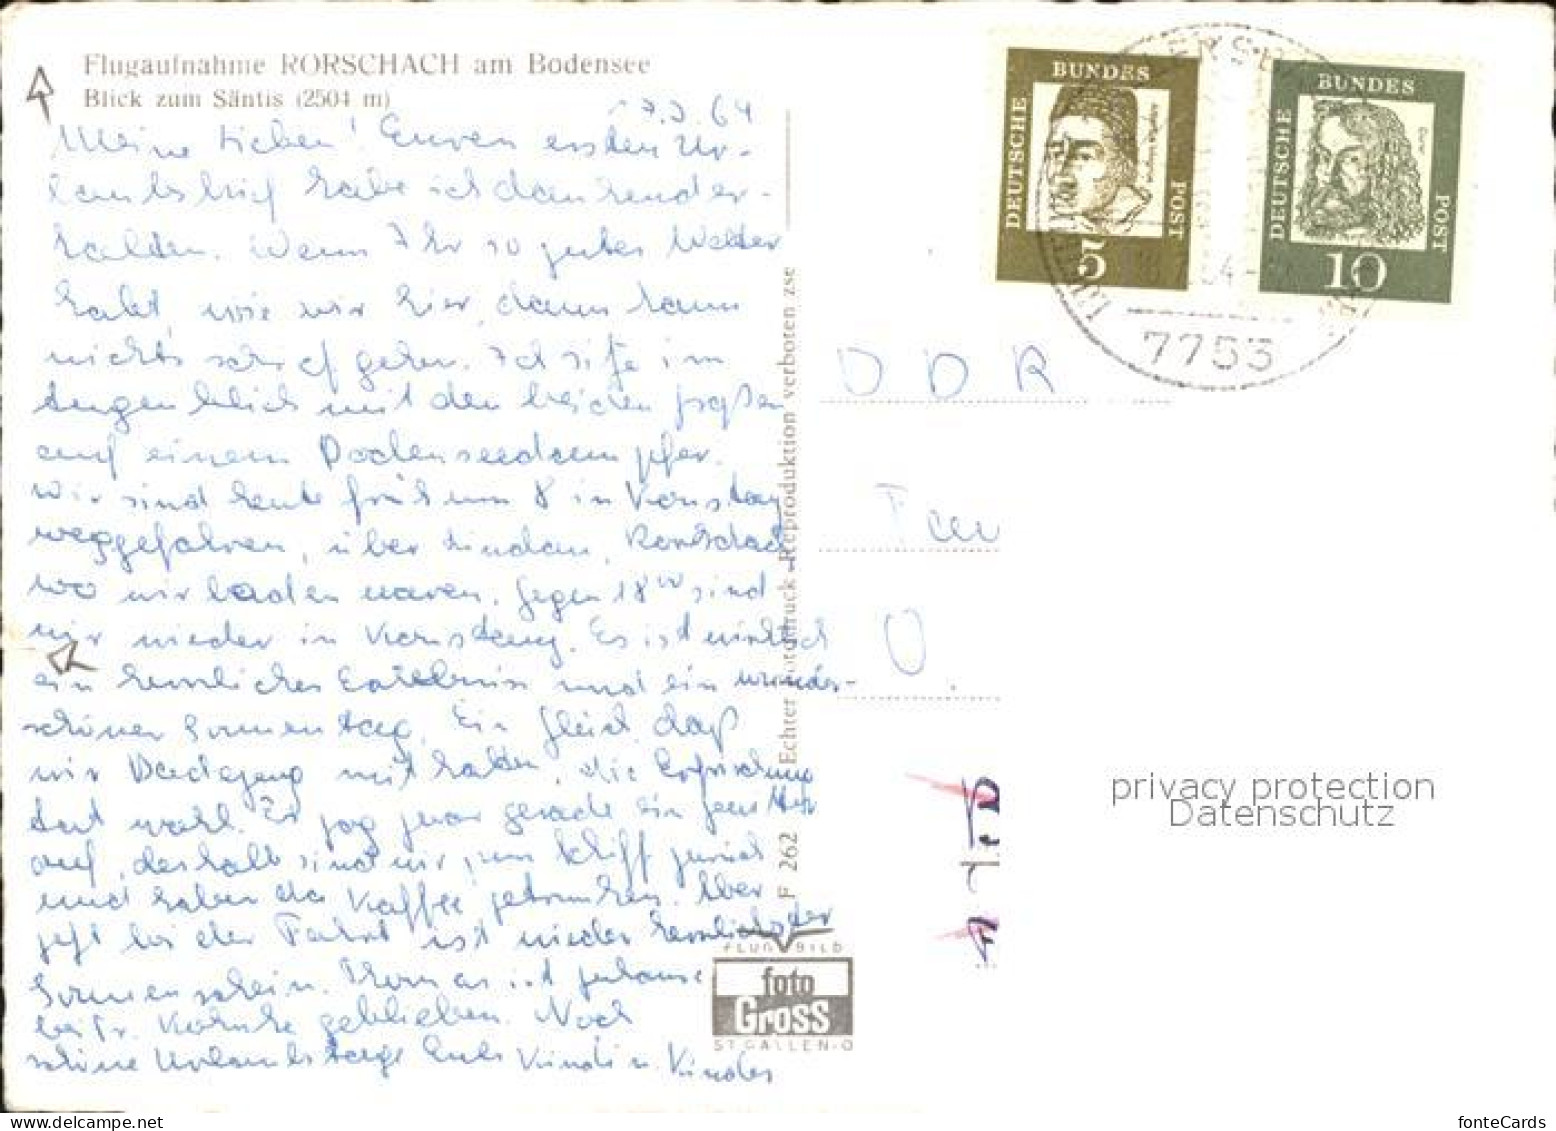 Flugaufnahme RORSCHACH am Bodensee
Blick zum Säntis (2504 m)
64
Meine Lieben! Euren ersten Ur-
laubsbrief habe ich dankend er-
halten. Wenn Ihr so gutes Wetter
habt, wie wir hier, dann kann
nichts schief gehen. Ich sitze im
Augenblick mit den beiden großen
auf einem Bodenseedampfer.
Wir sind heute früh um 8 in Konstanz
weggefahren, über Lindau, Rorschach
wo wir baden waren. Gegen 18⁰⁰ sind
wir wieder in Konstanz. Es ist wirklich
ein herrliches Erlebnis und ein wunder-
schöner Sonnentag. Ein Glück, daß
wir Badezeug mit hatten, die Erfrischung
tat wohl. Es zog zwar gerade ein Gewitter
auf, deshalb sind wir zum Schiff zurück
und haben da Kaffee getrunken. Aber
jetzt bei der Fahrt ist wieder herrlichster
Sonnenschein. Thomas ist zuhause
bei Fr. geblieben. Noch
schöne Urlaubstage Eure u. Kinder
Echter Fotodruck - Reproduktion verboten zse
F 262
FLUGBILD
foto
Gross
ST. GALLEN-O
DEUTSCHE
BUNDES
POST
5
DEUTSCHE
BUNDES
POST
10
Dürer
7753
DDR
O.
privacy protection
Datenschutz
fonteCards